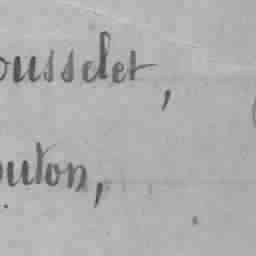 ousselet,
outon,